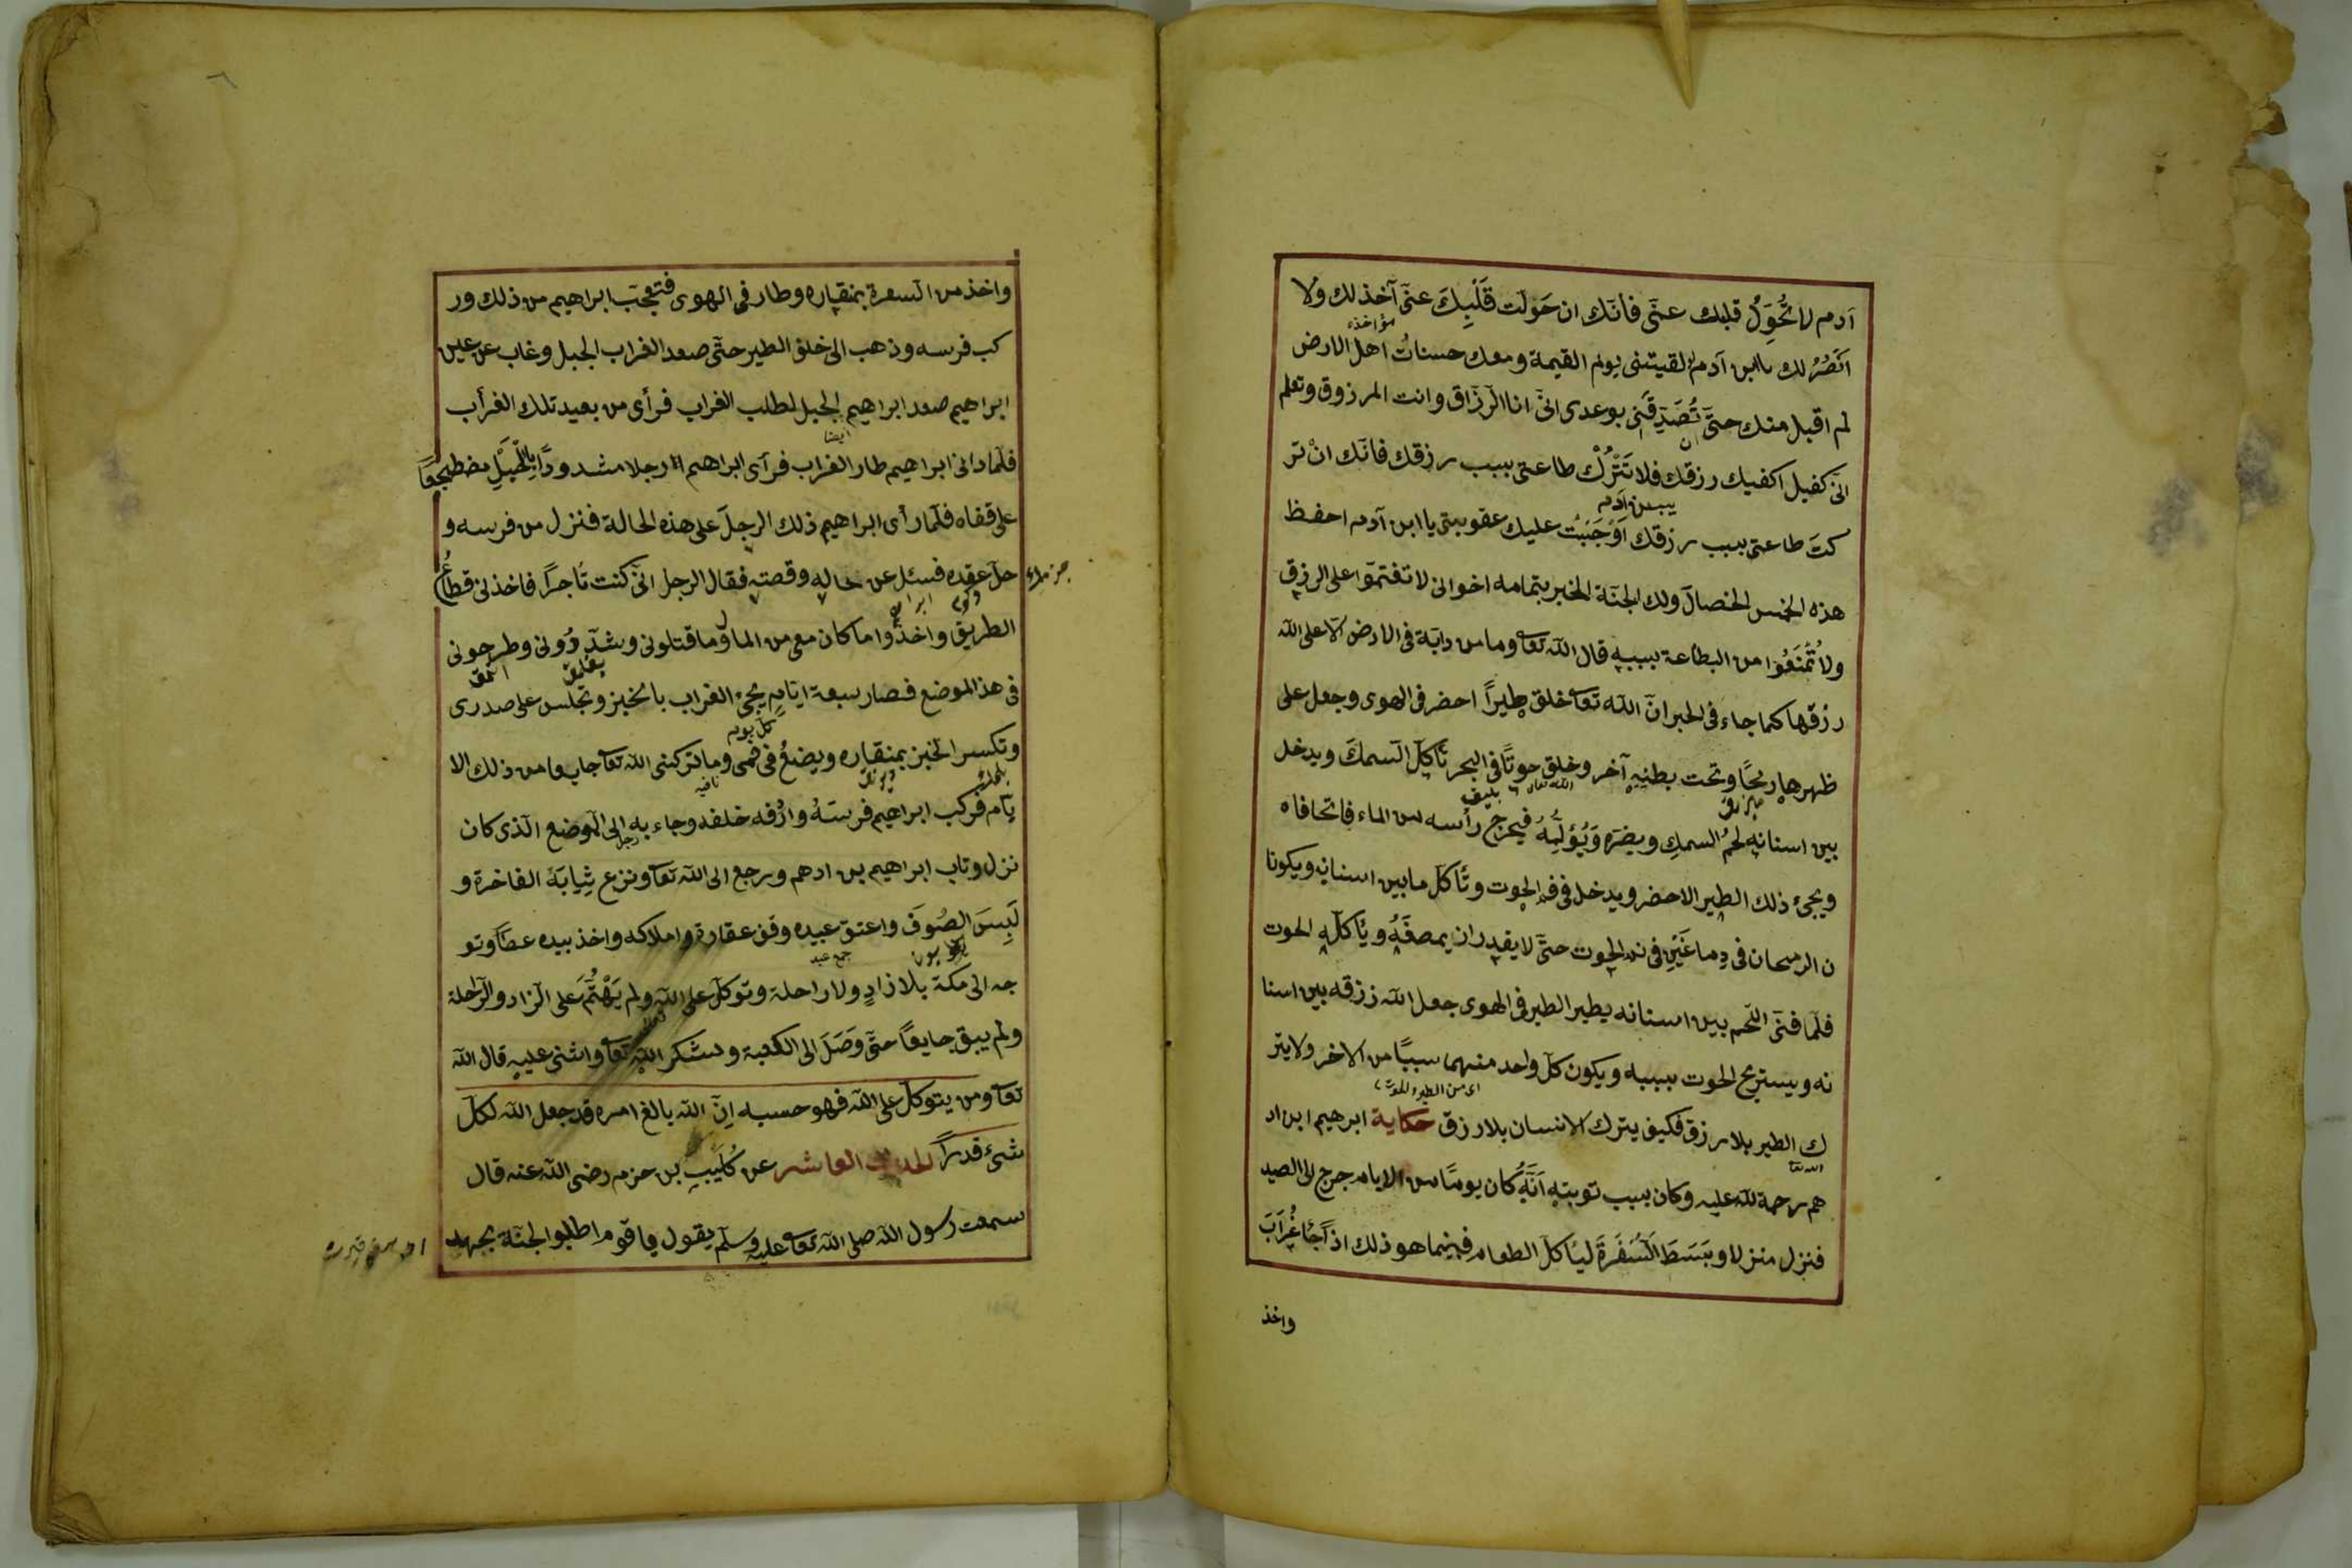 آدم لا تُحَوِّلْ قلبك عنّى فانّك ان حَولت قَلْبِكَ عنّى آخذ لك ولا
مؤاخذه
اَنْصُرُ لك يا ابن آدم لو لقيتنى يوم القيمة ومعك حسناتُ اهل الارض
لم اقبل منك حتّى تُصَدِّقَنِى بوعدى انّى انا الرزّاق وانت المرزوق وتعلم
انّى كفيل اكفيك رزقك فلا تَتْرُكْ طاعتى بسبب رزقك فانّك انْ تر
كتَ طاعتى بسبب رزقك اَوْجَبْتُ عليك عقوبتى يا ابن آدم احفظ
هذه الخمس الخصال ولك الجنّة الخبر بتمامه اخوانى لا تغتمّوا على الرزق
ولا تُمْنَعُوا من الطاعة بسببه قال اللّه تعا وما من دابّة فى الارض الّا على اللّه
رزقها كما جاء فى الخبر انّ اللّه تعا خلق طيراً احضر فى الهوى وجعل على
ظهرها ريحًا وتحت بطنه آخر وخلق حوتًا فى البحر تأكل السمكَ ويدخل
بين اسنانه لحمُ السمكِ ويضرّه وَيُؤلِمُهُ فيخرج رأسه من الماء فاتحا فاه
ويجئ ذلك الطير الاحضر ويدخل فى فم الحوت وتأكل ما بين اسنانه ويكونا
ن الريحان فى دماغَيْنِ فى فم الحوت حتّى لا يقدر ان يمصغَهُ ويأكله الحوت
فلمّا فنّى اللحم بين اسنانه يطير الطير فى الهوى جعل اللّه رزقه بين اسنا
نه ويستريح الحوت بسببه ويكون كلّ واحد منهما سببًا من الاخر ولا يتر
اى من الطير والحوت
ك الطير بلا رزق فكيف يترك الانسان بلا رزق حكاية ابرهيم ابن اد
هم رحمة اللّه عليه وكان بسبب توبته اَنّهُ كان يومًا من الايام خرج الى الصيد
فنزل منزلا وبَسَطَ السُفْرَةَ ليأكل الطعام فبينما هو ذلك اذ جَا غُرَابَ
واخذ
واخذ من السفرة بمنقاره وطار فى الهوى فتعجّب ابراهيم من ذلك ور
كب فرسه وذهب الى خلف الطير حتّى صعد الغراب الجبل وغاب عن عين
ابراهيم صعد ابراهيم الجبل لطلب الغراب فرأى من بعيد تلك الغراب
ايضا
فلمّا دانى ابراهيم طار الغراب فرأى ابراهيم رجلا مشدودًا بالحَبْلِ مضطجعًا
على قفاه فلمّا رأى ابراهيم ذلك الرجلَ على هذه الحالة فنزل من فرسه و
حلّ عقده فسئل عن حاله وقصته فقال الرجل انّى كنت تاجراً فاخذنى قطاعُ
الطريق واخذوا ما كان معى من المال وما قتلونى وشدّوُونى وطرحونى
فى هذا الموضع فصار سبعة ايّامٍ يجئ الغراب بالخبز وتجلس على صدرى
كل يوم
وتكسر الخبز بمنقاره ويضعُ فى فمى وما تركنى اللّه تعا جايعا من ذلك الا
نافيه
يّام فركب ابراهيم فرسهُ واردُفه خلفه وجاء به الى الموضع الّذى كان
نزل وتاب ابراهيم بن ادهم ورجع الى اللّه تعا ونزع ثِيابَهُ الفاخرة و
لَبِسَ الصُوفَ واعتق عبيده وقف عقارة واملاكه واخذ بيده عصًا وتو
جمع عبد
جه الى مكة بلا زادٍ ولا راحلة وتوكّل على اللّه ولم يَهْتَمّ على الزاد والراحلة
ولم يبق جايعًا حتّى وَصَلَ الى الكعبة وشكر اللّه تعا واثنى عليه قال اللّه
تعا ومن يتوكّل على اللّه فهو حسبه انّ اللّه بالغ امره قد جعل اللّه لكلّ
شئ قدراً الحديث العاشر عن كُلَيبِ بن حزم رضى اللّه عنه قال
سمعت رسول اللّه صلى اللّه تعا عليه وسلّم يقول يا قوم اطلبوا الجنّة بجهد